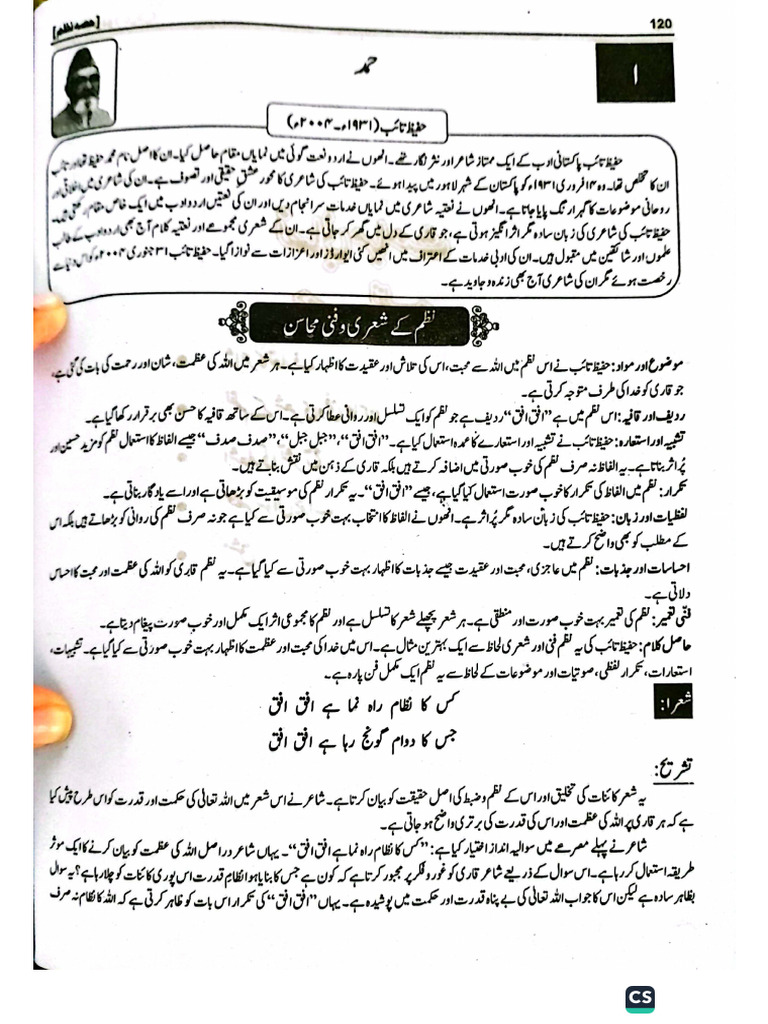 120
[حصہ نظم]
۱
حمد
حفیظ تائب (۱۹۳۱ء۔۲۰۰۴ء)
حفیظ تائب پاکستانی ادب کے ایک ممتاز شاعر اور نثر نگار تھے۔ انھوں نے اردو نعت گوئی میں نمایاں مقام حاصل کیا۔ ان کا اصل نام محمد حفیظ تھا اور تائب
ان کا تخلص تھا۔ وہ ۱۴ فروری ۱۹۳۱ء کو پاکستان کے شہر لاہور میں پیدا ہوئے۔ حفیظ تائب کی شاعری کا محور عشقِ حقیقی اور تصوف ہے۔ ان کی شاعری میں اخلاقی اور
روحانی موضوعات کا گہرا رنگ پایا جاتا ہے۔ انھوں نے نعتیہ شاعری میں نمایاں خدمات سرانجام دیں اور ان کی نعتیں اردو ادب میں ایک خاص مقام رکھتی ہیں۔
حفیظ تائب کی شاعری کی زبان سادہ مگر اثر انگیز ہوتی ہے، جو قاری کے دل میں گھر کر جاتی ہے۔ ان کے شعری مجموعے اور نعتیہ کلام آج بھی اردو ادب کے طالب
علموں اور شائقین میں مقبول ہیں۔ ان کی ادبی خدمات کے اعتراف میں انھیں کئی ایوارڈز اور اعزازات سے نوازا گیا۔ حفیظ تائب ۳۱ جنوری ۲۰۰۴ء کو اس دنیا سے
رخصت ہوئے مگر ان کی شاعری آج بھی زندہ و جاوید ہے۔
نظم کے شعری و فنی محاسن
موضوع اور مواد: حفیظ تائب نے اس نظم میں اللہ سے محبت، اس کی تلاش اور عقیدت کا اظہار کیا ہے۔ ہر شعر میں اللہ کی عظمت، شان اور رحمت کی بات کی گئی ہے،
جو قاری کو خدا کی طرف متوجہ کرتی ہے۔
ردیف اور قافیہ: اس نظم میں ہے ”افق افق“ ردیف ہے جو نظم کو ایک تسلسل اور روانی عطا کرتی ہے۔ اس کے ساتھ قافیہ کا حسن بھی برقرار رکھا گیا ہے۔
تشبیہ اور استعارہ: حفیظ تائب نے تشبیہ اور استعارے کا عمدہ استعمال کیا ہے۔ ”افق افق“، ”جبل جبل“، ”صدف صدف“ جیسے الفاظ کا استعمال نظم کو مزید حسین اور
پُر اثر بناتا ہے۔ یہ الفاظ نہ صرف نظم کی خوب صورتی میں اضافہ کرتے ہیں بلکہ قاری کے ذہن میں نقش بناتے ہیں۔
تکرار: نظم میں الفاظ کی تکرار کا خوب صورت استعمال کیا گیا ہے، جیسے ”افق افق“۔ یہ تکرار نظم کی موسیقیت کو بڑھاتی ہے اور اسے یادگار بناتی ہے۔
لفظیات اور زبان: حفیظ تائب کی زبان سادہ مگر پُر اثر ہے۔ انھوں نے الفاظ کا انتخاب بہت خوب صورتی سے کیا ہے جو نہ صرف نظم کی روانی کو بڑھاتے ہیں بلکہ اس
کے مطلب کو بھی واضح کرتے ہیں۔
احساسات اور جذبات: نظم میں عاجزی، محبت اور عقیدت جیسے جذبات کا اظہار بہت خوب صورتی سے کیا گیا ہے۔ یہ نظم قاری کو اللہ کی عظمت اور محبت کا احساس
دلاتی ہے۔
فنی تعمیر: نظم کی تعمیر بہت خوب صورت اور منطقی ہے۔ ہر شعر پچھلے شعر کا تسلسل ہے اور نظم کا مجموعی اثر ایک مکمل اور خوب صورت پیغام دیتا ہے۔
حاصل کلام: حفیظ تائب کی یہ نظم فنی اور شعری لحاظ سے ایک بہترین مثال ہے۔ اس میں خدا کی محبت اور عظمت کا اظہار بہت خوب صورتی سے کیا گیا ہے۔ تشبیہات،
استعارات، تکرار لفظی، صوتیات اور موضوعات کے لحاظ سے یہ نظم ایک مکمل فن پارہ ہے۔
شعر ۱:
کس کا نظام راہ نما ہے افق افق
جس کا دوام گونج رہا ہے افق افق
تشریح:
یہ شعر کائنات کی تخلیق اور اس کے نظم و ضبط کی اصل حقیقت کو بیان کرتا ہے۔ شاعر نے اس شعر میں اللہ تعالیٰ کی حکمت اور قدرت کو اس طرح پیش کیا
ہے کہ ہر قاری پر اللہ کی عظمت اور اس کی قدرت کی برتری واضح ہو جاتی ہے۔
شاعر نے پہلے مصرعے میں سوالیہ انداز اختیار کیا ہے: ”کس کا نظام راہ نما ہے افق افق“۔ یہاں شاعر دراصل اللہ کی عظمت کو بیان کرنے کا ایک موثر
طریقہ استعمال کر رہا ہے۔ اس سوال کے ذریعے شاعر قاری کو غور و فکر پر مجبور کرتا ہے کہ کون ہے جس کا بنایا ہوا نظام قدرت اس پوری کائنات کو چلا رہا ہے؟ یہ سوال
بظاہر سادہ ہے لیکن اس کا جواب اللہ تعالیٰ کی بے پناہ قدرت اور حکمت میں پوشیدہ ہے۔ یہاں ”افق افق“ کی تکرار اس بات کو ظاہر کرتی ہے کہ اللہ کا نظام نہ صرف
CS